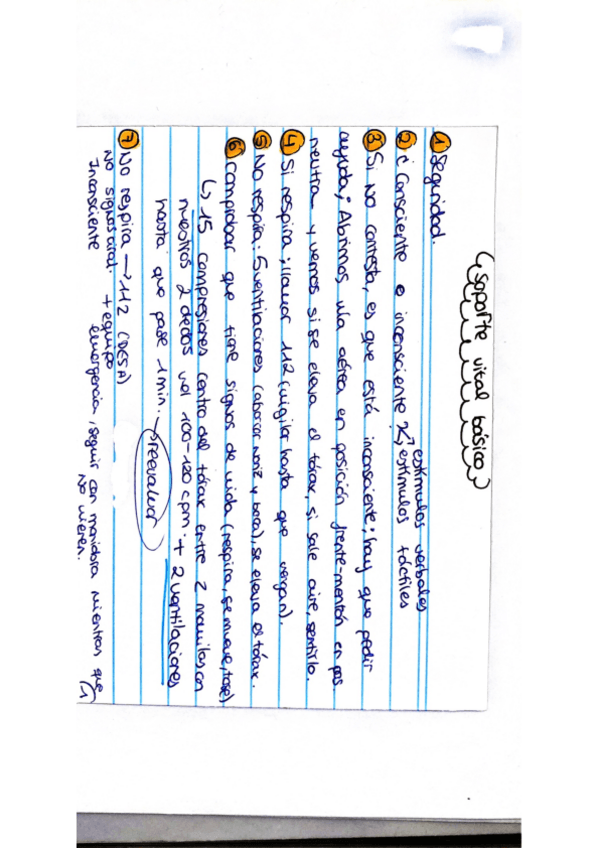 Soporte vital básico
1 Seguridad.
2 ¿Consciente o inconsciente? estímulos verbales
estímulos táctiles
3 Si no contesta, es que está inconsciente; hay que pedir
ayuda; Abrimos vía aérea en posición frente-mentón en pos.
neutra y vemos si se eleva el tórax, si sale aire, sentirlo.
4 Si respira; llamar 112 (vigilar hasta que vengan).
5 No respira: 5 ventilaciones (abarcar nariz y boca), se eleva el tórax.
6 Comprobar que tiene signos de vida (respira, se mueve, tose)
↳ 15 compresiones centro del tórax entre 2 mamilas con
nuestros 2 dedos vel 100-120 cpm. + 2 ventilaciones
hasta que pase 1 min. → reevaluar
7 No respira → 112 (DESA)
No signos vital. + equipo
Inconsciente emergencia, seguir con maniobra mientras que
no vienen. (1)